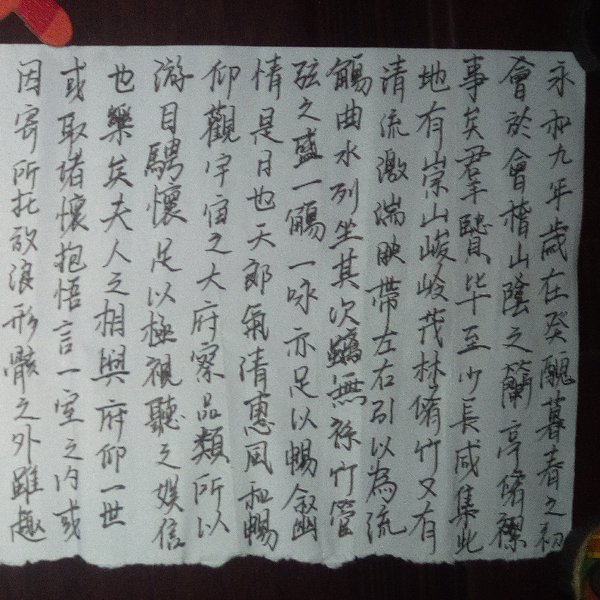 永和九年歲在癸醜暮春之初
會於會稽山陰之蘭亭脩禊
事矣羣賢畢至少長咸集此
地有崇山峻嶺茂林脩竹又有
清流激湍映帶左右引以為流
觴曲水列坐其次雖無絲竹管
弦之盛一觴一咏亦足以暢敘幽
情是日也天郎氣清惠風和暢
仰觀宇宙之大府察品類所以
游目騁懷足以極視聽之娛信
也樂矣夫人之相與府仰一世
或取諸懷抱悟言一室之內或
因寄所托放浪形骸之外雖趣